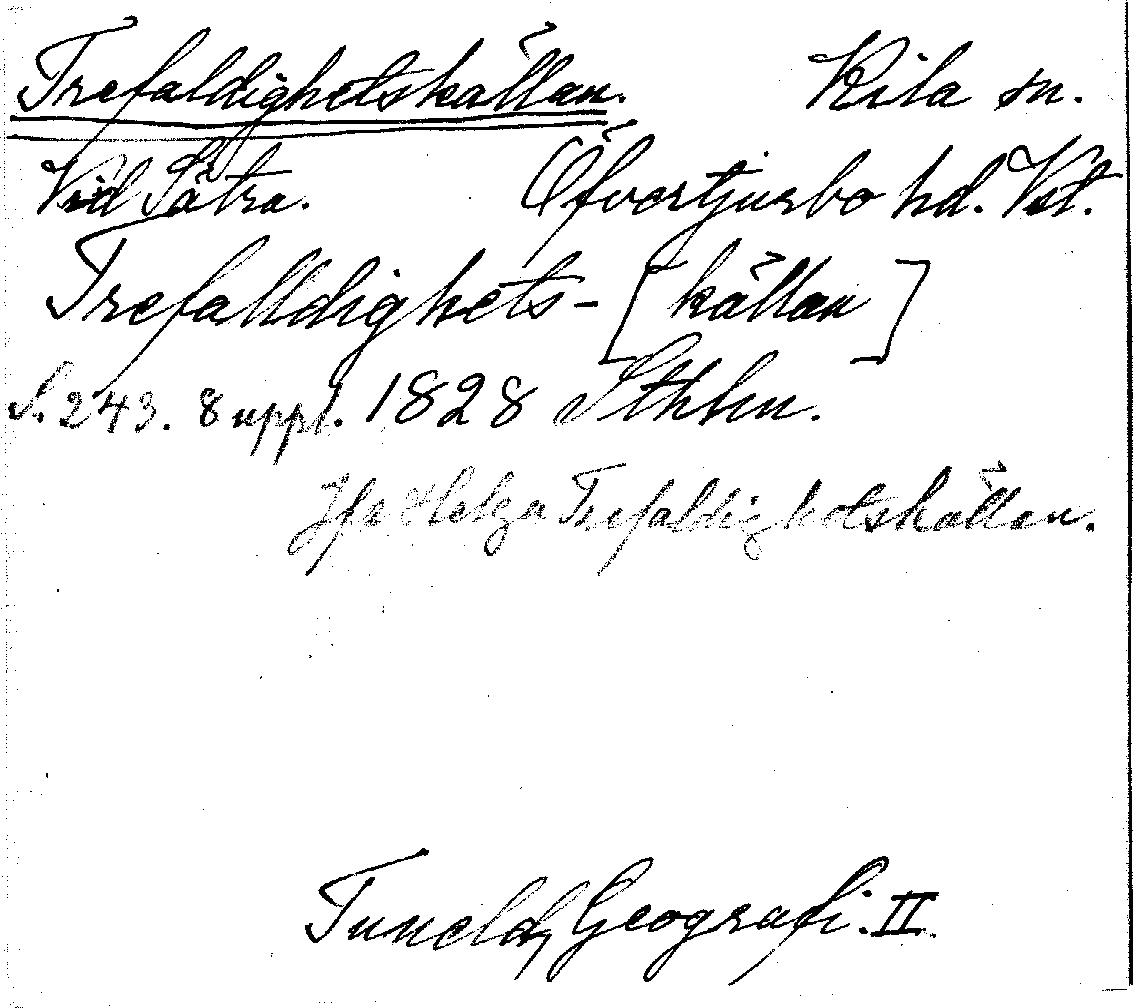 Trefaldighetskällan. Kila sn.
Vid Sätra. Öfvertjurbo hd. Vst.
Trefalldighets-[källan]
S. 243. 8 uppl. 1828 Sthlm.
Jfr Helga Trefaldighetskällan.
Tuneld, Geografi. II.